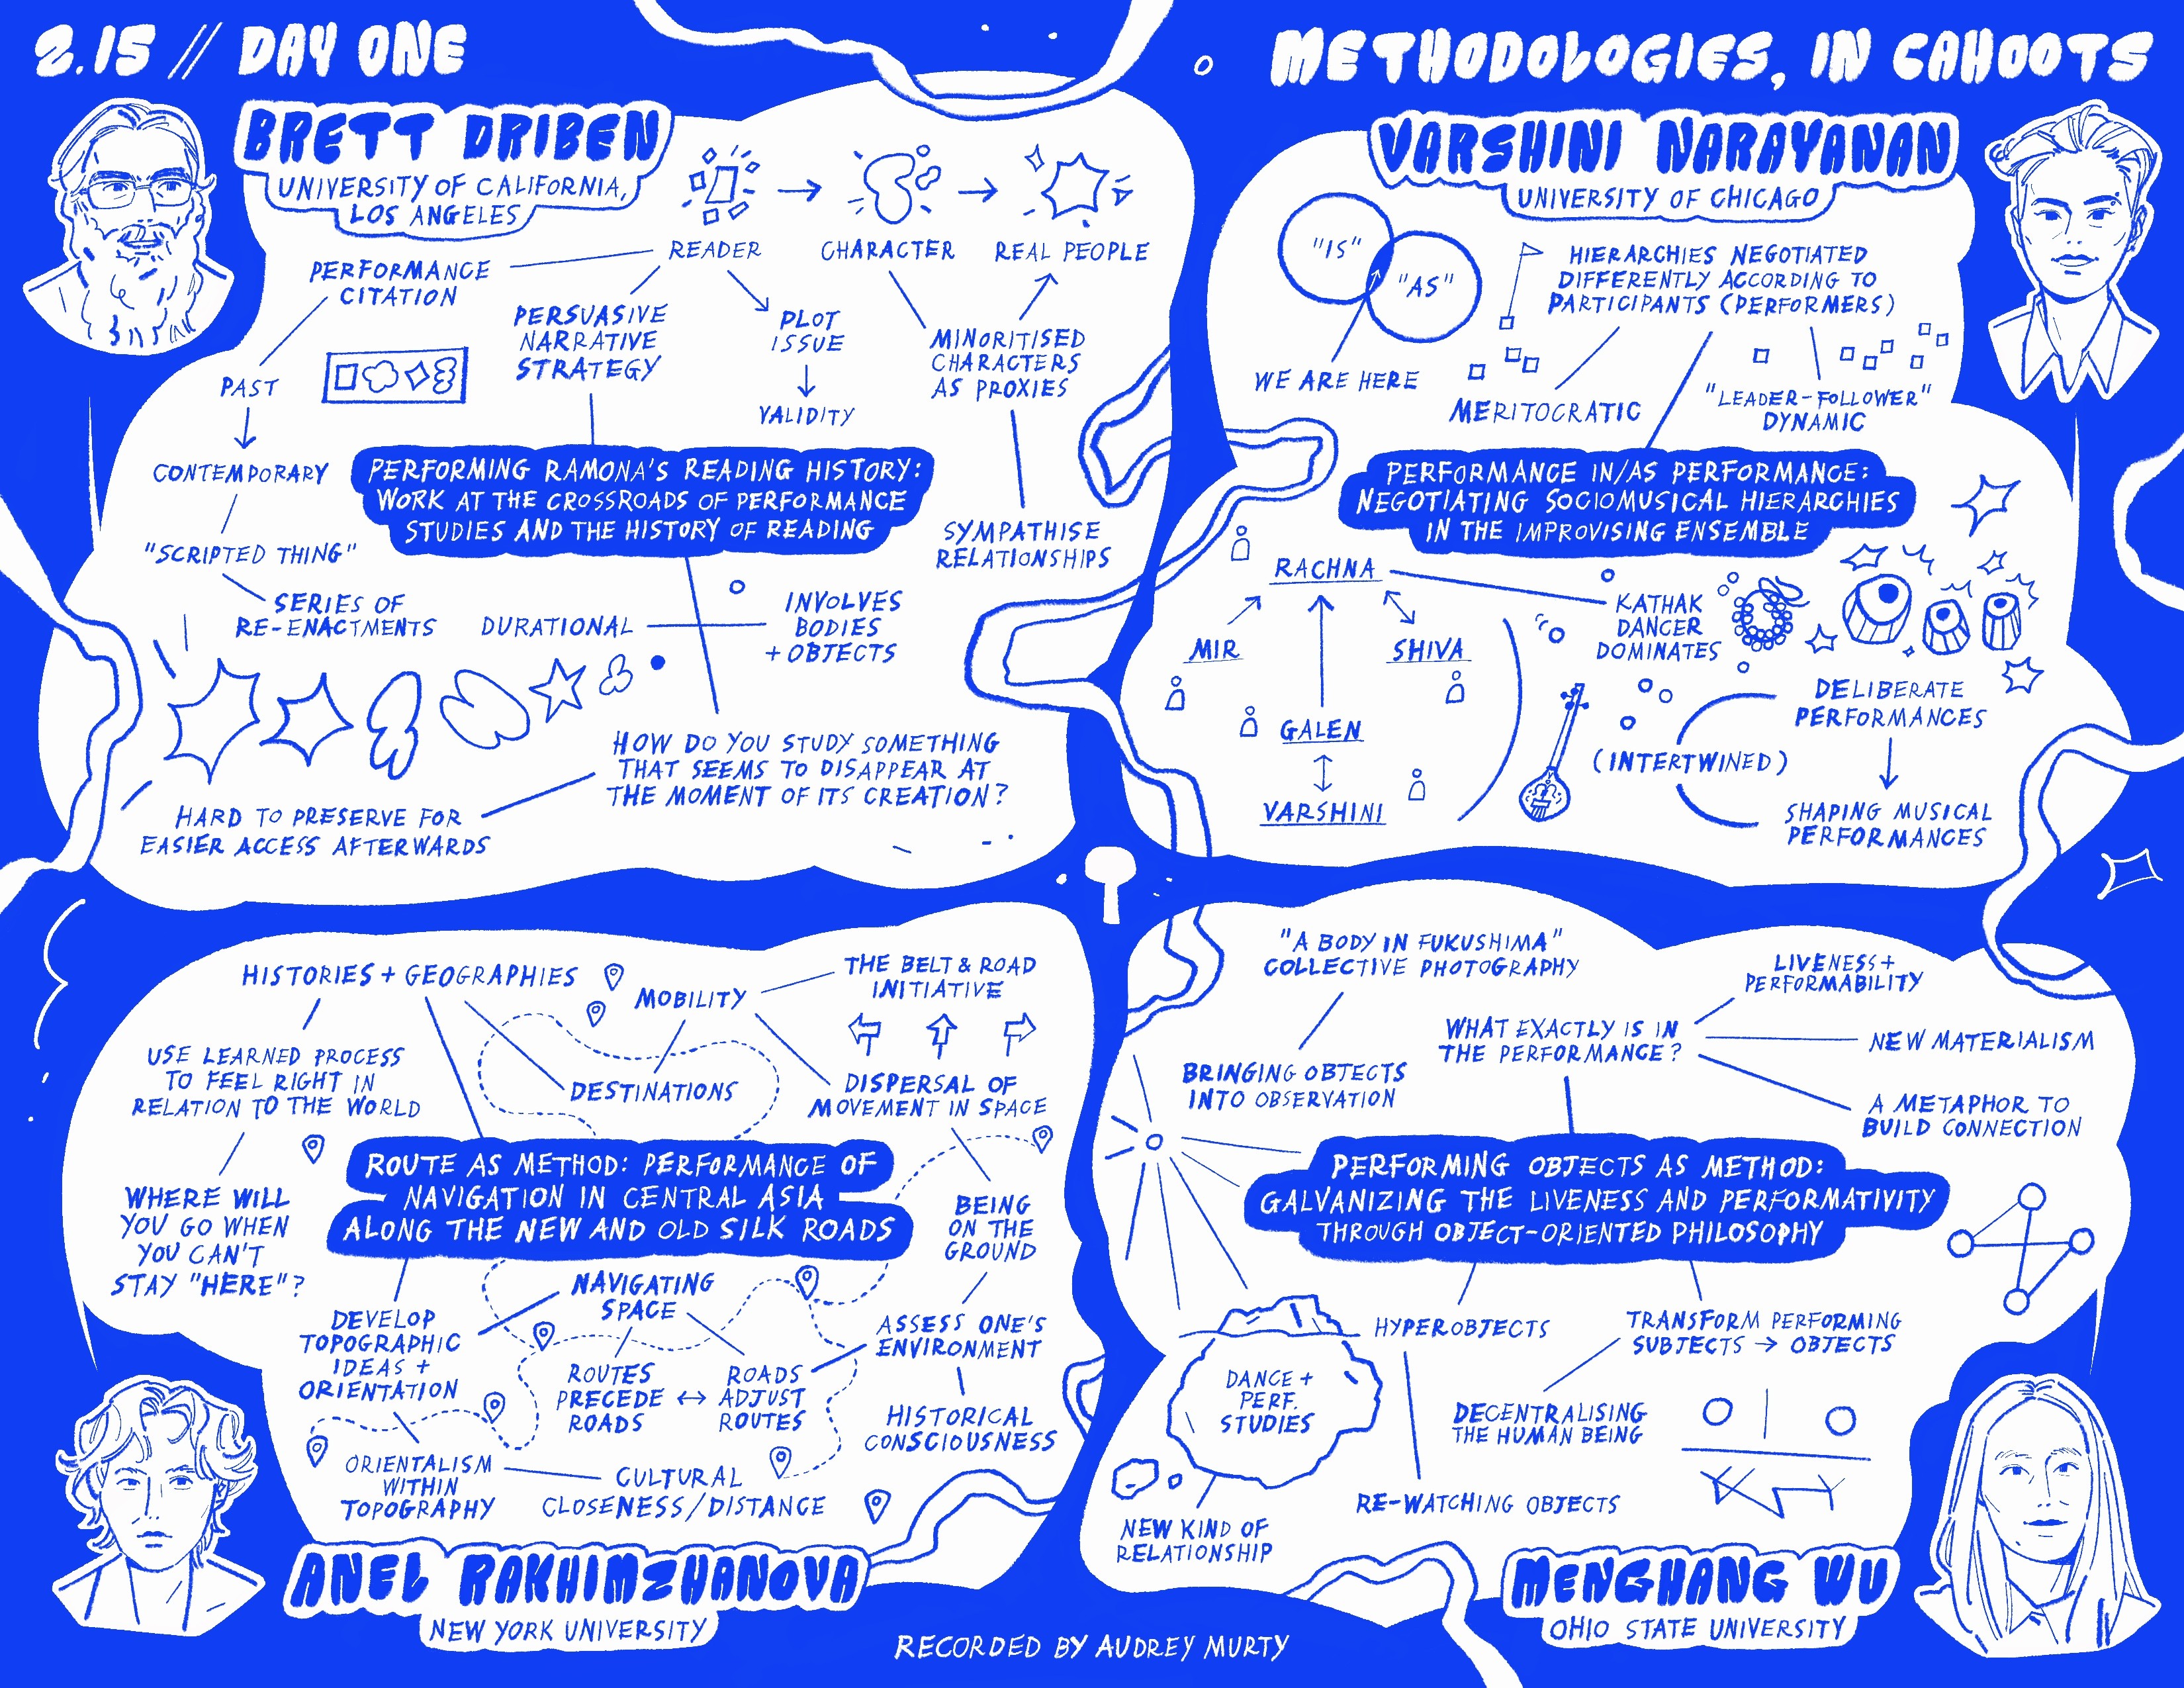 2.15 // DAY ONE
METHODOLOGIES, IN CAHOOTS
BRETT DRIBEN
UNIVERSITY OF CALIFORNIA,
LOS ANGELES
READER
CHARACTER
REAL PEOPLE
PERFORMANCE
CITATION
PERSUASIVE
NARRATIVE
STRATEGY
PLOT
ISSUE
VALIDITY
MINORITISED
CHARACTERS
AS PROXIES
PAST
CONTEMPORARY
PERFORMING RAMONA'S READING HISTORY:
WORK AT THE CROSSROADS OF PERFORMANCE
STUDIES AND THE HISTORY OF READING
SYMPATHISE
RELATIONSHIPS
"SCRIPTED THING"
SERIES OF
RE-ENACTMENTS
DURATIONAL
INVOLVES
BODIES
+ OBJECTS
HOW DO YOU STUDY SOMETHING
THAT SEEMS TO DISAPPEAR AT
THE MOMENT OF ITS CREATION?
HARD TO PRESERVE FOR
EASIER ACCESS AFTERWARDS
VARSHINI NARAYANAN
UNIVERSITY OF CHICAGO
"IS"
"AS"
WE ARE HERE
HIERARCHIES NEGOTIATED
DIFFERENTLY ACCORDING TO
PARTICIPANTS (PERFORMERS)
MERITOCRATIC
"LEADER-FOLLOWER"
DYNAMIC
PERFORMANCE IN/AS PERFORMANCE:
NEGOTIATING SOCIOMUSICAL HIERARCHIES
IN THE IMPROVISING ENSEMBLE
RACHNA
MIR
SHIVA
GALEN
VARSHINI
KATHAK
DANCER
DOMINATES
DELIBERATE
PERFORMANCES
(INTERTWINED)
SHAPING MUSICAL
PERFORMANCES
HISTORIES + GEOGRAPHIES
MOBILITY
THE BELT & ROAD
INITIATIVE
USE LEARNED PROCESS
TO FEEL RIGHT IN
RELATION TO THE WORLD
DESTINATIONS
DISPERSAL OF
MOVEMENT IN SPACE
WHERE WILL
YOU GO WHEN
YOU CAN'T
STAY "HERE"?
ROUTE AS METHOD: PERFORMANCE OF
NAVIGATION IN CENTRAL ASIA
ALONG THE NEW AND OLD SILK ROADS
BEING
ON THE
GROUND
DEVELOP
TOPOGRAPHIC
IDEAS +
ORIENTATION
NAVIGATING
SPACE
ROUTES
PRECEDE
ROADS
↔
ROADS
ADJUST
ROUTES
ASSESS ONE'S
ENVIRONMENT
HISTORICAL
CONSCIOUSNESS
ORIENTALISM
WITHIN
TOPOGRAPHY
CULTURAL
CLOSENESS/DISTANCE
ANEL RAKHIMZHANOVA
NEW YORK UNIVERSITY
"A BODY IN FUKUSHIMA"
COLLECTIVE PHOTOGRAPHY
BRINGING OBJECTS
INTO OBSERVATION
WHAT EXACTLY IS IN
THE PERFORMANCE?
LIVENESS +
PERFORMABILITY
NEW MATERIALISM
A METAPHOR TO
BUILD CONNECTION
PERFORMING OBJECTS AS METHOD:
GALVANIZING THE LIVENESS AND PERFORMATIVITY
THROUGH OBJECT-ORIENTED PHILOSOPHY
HYPEROBJECTS
TRANSFORM PERFORMING
SUBJECTS → OBJECTS
DANCE +
PERF.
STUDIES
DECENTRALISING
THE HUMAN BEING
RE-WATCHING OBJECTS
NEW KIND OF
RELATIONSHIP
MENGHANG WU
OHIO STATE UNIVERSITY
RECORDED BY AUDREY MURTY